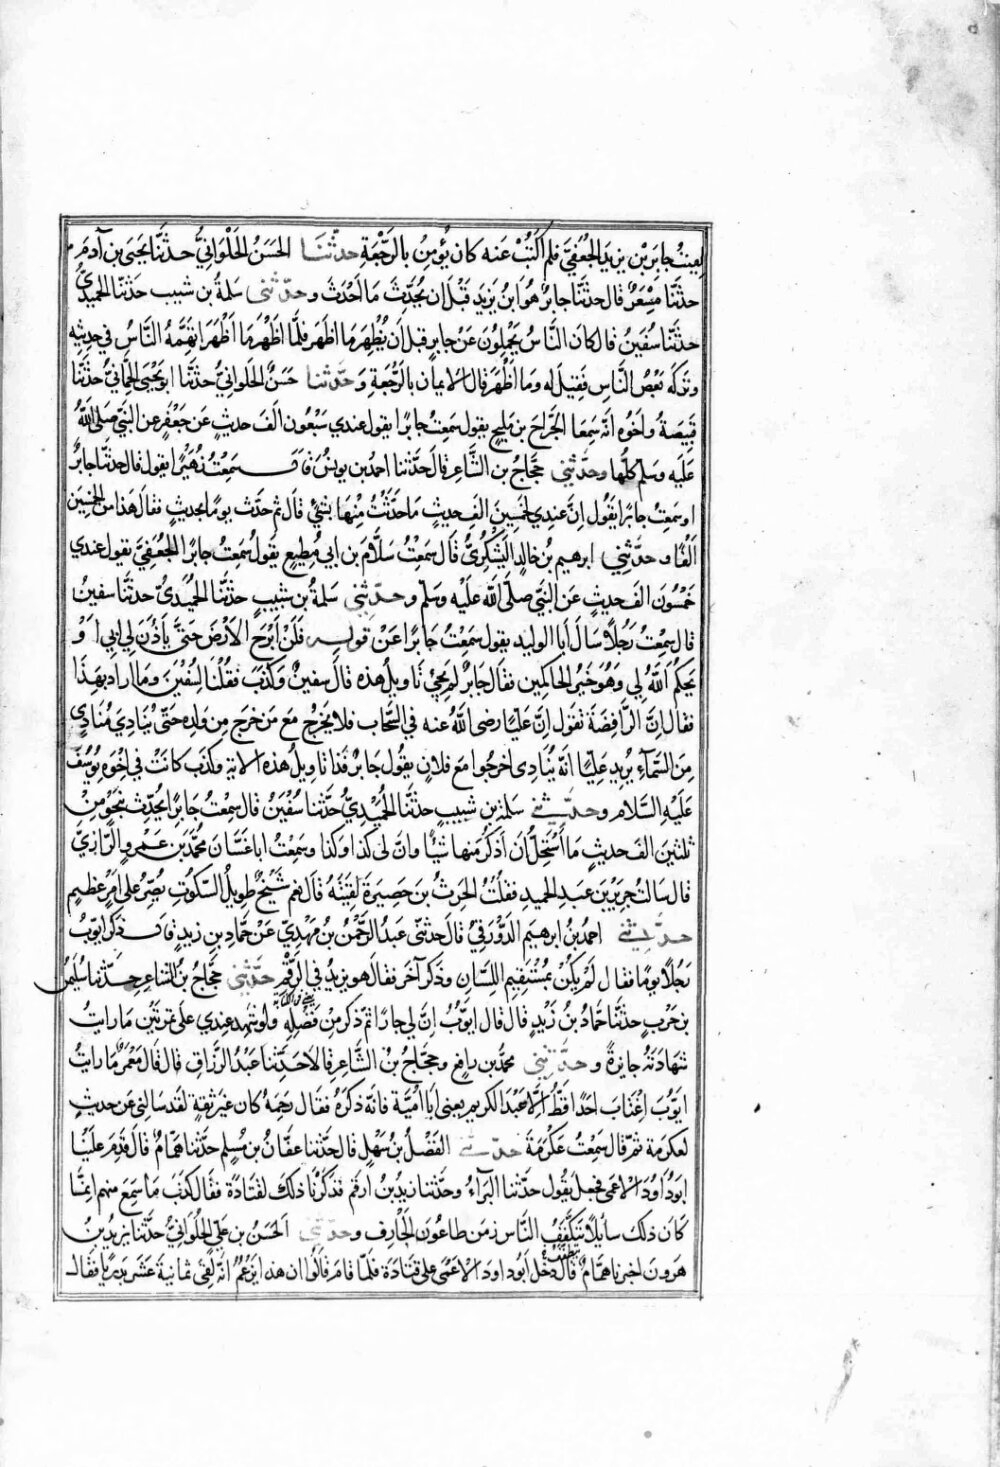 لقيتُ جابرَ بْن يزيدَ الجُعفيَّ فلم اَكتُبْ عَنه كان يُؤمِنُ بالرَّجْعَةِ حدّثنَا الحَسَنُ الحَلْوانيُّ حدثنَا يحيَى بن آدمَ
حدّثنا مِسْعَرٌ قال حدثنا جابرُ هُوَ ابنُ يَزيدَ قبْلَ ان يُحَدِّثَ مَا اَحْدَثَ وحدّثنى سلمةُ بن شبيب حدثنا الحميديُّ
حدثنا سُفينُ قال كانَ النَّاسُ يَحْمِلونَ عَنْ جابرٍ قبلَ اَن يُظْهِرَ ما اظهَرَ فلمَّا اَظْهَرَ ما اَظْهَرَ اتّهَمَهُ النَّاسُ في حديثِه
وتركَه بَعضُ النَّاسِ فَقيلَ له وما اَظْهَرَ قال الايمان بالرّجْعَةِ وحَدّثنا حَسَنٌ الحلوانيُّ حدثنا ابو يَحْيَى الحمانيُّ حدّثنَا
قبيصَةُ واَخوُه انّه سَمعَا الجَرَّاحَ بنَ مليحٍ يقول سَمِعتُ جابرًا يقول عندي سَبْعُونَ الفَ حديثٍ عَن جَعْفَرٍ عن النبّيِ صلىَ اللّهُ
عَليَه وسلم كلُّها وحَدَّثَنِي حجّاجُ بن الشَّاعِرِ قالَ حَدّثنا احمد بن يونسَ قاَلَ سمعْتُ زُهَيْرًا يقول قال حدثنا جابرٌ
اوسَمعِتُ جابرًا يَقُول اِنَّ عندِي لخَمسِينَ الفَ حديثٍ مَا حَدَّثْتُ مِنْهَا بشَئٍ قالَ ثم حَدّثَ يومًا بحديثٍ فقال هَذا من الخمسينَ
اَلفًا وحَدَّثنِي ابرهيم بن خالدٍ اليَشكرُيُّ قالَ سَمعتُ سَلَّامَ بن ابي مُطيعٍ يقول سَمعتُ جابرًا الجُعفيَّ يقول عندي
خَمسُونَ الفَ حديثٍ عَن النَّبيِّ صلى اللّٰه عَليْه وسَلم وحَدّثنى سَلمةُ بن شَبيبٍ حدّثنا الحُميديُّ حدثنا سفينُ
قال سمعتُ رجُلاً سَالَ أبا الوليد يقول سَمعْتُ جابرًا عَنْ قَولِه فَلَنْ اَبْرَحَ الاَرْضَ حَتَّى يأذَنَ لِي اَبِي اَوْ
يَحكُمَ اَللّهُ لِي وَهُوَ خَيْرُ الحاكِمِين فقالَ جابرٌ لم يَجِئ تاويلُ هذه قالَ سفينُ وكَذَبَ فقُلْنَا لسُفْينَ وما ارادَ بهذا
فقال اِنَّ الرَّافِضةَ تَقول اِنَّ عليًّا رضى اللّٰهُ عنه في السَّحابِ فلا يَخرُج مَعَ مَن خَرَجَ مِن وَلدِه حَتّى يُنَادِيَ مُنادٍ
مِنَ السَّمآءِ يريدُ عليًّا انّه يُنَادى اخرجوا مَع فلانٍ يقول جابرٌ فذا تاويلُ هذه الاية وكذَبَ كانَتْ في اِخْوَةِ يُوسُفَ
عَليه السَّلام وحدّثني سَلمةُ بن شبيبٍ حدثنا الحُميديُّ حدَّثنا سُفينُ قال سَمِعتُ جابرًا يُحدِّثُ بنحوٍ مِنْ
ثلثين الفَ حَديثٍ مَا أستَحِلُّ أن اَذكرَ مِنها شيأً وانَّ لى كذا وكذا وسَمِعتُ ابا غَسَّانَ مُحَمَّدَ بن عَمْرٍو الرّازيَّ
قال سالتُ جريرَ بن عَبدِ الحميدِ فقلتُ الحَرِثُ بن حَصيرةَ لَقِيتَهُ قالَ نعم شَيْخٌ طويلُ السّكوتِ يُصِرُّ على اَمْرٍ عظيمٍ
حدّثني احمدُ بنُ ابرهيم الدَّوْرَقيُّ قالَ حدثنى عَبدُ الرّحمنِ بن مَهْدِيّ عَنْ حَمّادِ بن زَيدٍ قال ذكرَ ايّوبُ
رَجُلاً يومًا فقال لَمْ يكنْ بمُسْتَقيم اللِّسَانِ وذكرَ آخرَ فقال هو يزيدُ في الرّقْمِ حدّثنى حجّاجُ بنُ الشاعِرِ حدّثنا سُليمنُ
بن حَربٍ حدّثنا حَمّادُ بنُ زَيْدٍ قال قال ايّوبُ اِنّ لي جارًا ثم ذكَر مِنْ فضلِه ولو شَهِدَ عندِي على تمرَتَيْنِ مَا رايتُ
شهَادَتهُ جايزةً وحَدَّثنِي محمّدُ بن رافعٍ وحجّاجُ بنُ الشّاعرِ قالا حَدّثنا عَبْدُ الرَّزّاقِ قالَ قالَ مَعْمَرٌ ما رايتُ
ايّوُبَ اغْتَابَ احَدًا قَطُّ اِلَّا عَبْدَ الكريم يعنى اَبا اُمَيَّةَ فانّه ذكَرَهُ فقال رحِمَه كان غَيرَ ثِقةٍ لقد سَالني عَن حَديثٍ
لعكرمةَ ثمّ قال سَمِعتُ عكرِمَةَ حدّثني الفَضْلُ بن سَهْلٍ قال حَدّثنا عَفّانُ بن مُسْلِم حدّثنا هَمّامٌ قال قَدِمَ عَلَيْنا
ابودَاودَ الاعَمى فجعلَ يَقُول حدّثنا البَرَاءُ وحدّثنا زيدُ بن ارقم فذكَرْنا ذلك لقتادَةَ فقالَ كذبَ مَا سَمِعَ مِنهم اِنمَّا
كَانَ ذلك سائِلاً يَتَكَفَّفُ النَّاسَ زمَنَ طاعُونِ الجَارِفِ وحدّثنِي الحَسَنُ بن عَلي الحُلوانيُّ حدّثنا يزيدُ بن
هرون اخبرنا همّامٌ قال دَخَل اَبُو داودَ الاعمَى على قَتَادَةَ فلمّا قامَ قالُوا ان هذا يَزعُمُ انّه لَقِى ثمانيةَ عَشَرَ بدريًّا فقال